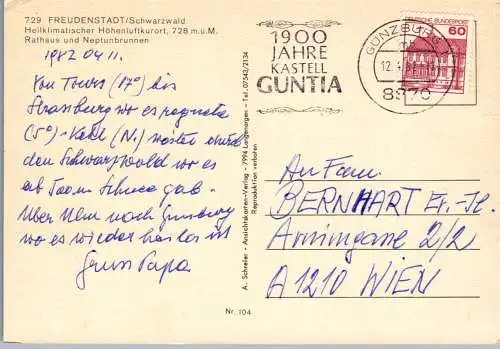 729 FREUDENSTADT/Schwarzwald
Heilklimatischer Höhenluftkurort, 728 m.ü.M.
Rathaus und Neptunbrunnen
1982 04 11.
Von Tours (17°) bis
Strassburg wo es regnete
(5°) - Kehl (N.) weiter durch
den Schwarzwald wo es
ab 700 m Schnee gab.
Über Ulm nach Günzburg
wo es wieder heiter ist
Gruss Papa
A. Schreier - Ansichtskarten-Verlag - 7994 Langenargen - Tel. 07543/2134
Reproduktion verboten
Nr. 104
1900
JAHRE
KASTELL
GUNTIA
GÜNZBURG
12.4.
8870
DEUTSCHE BUNDESPOST
60
An Fam.
BERNHART Er.-H.
Arnimgasse 2/2
A 1210 WIEN